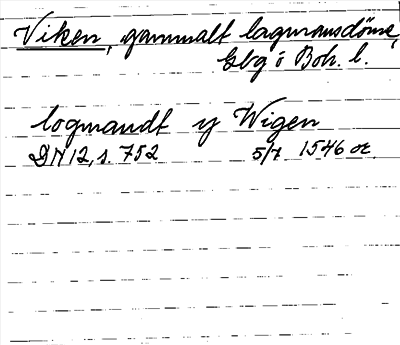 Viken, gammalt lagmansdöme,
Gbg o Boh. l.
logmandt y Wigen
DN 12, s. 752 5/7 1546 or.